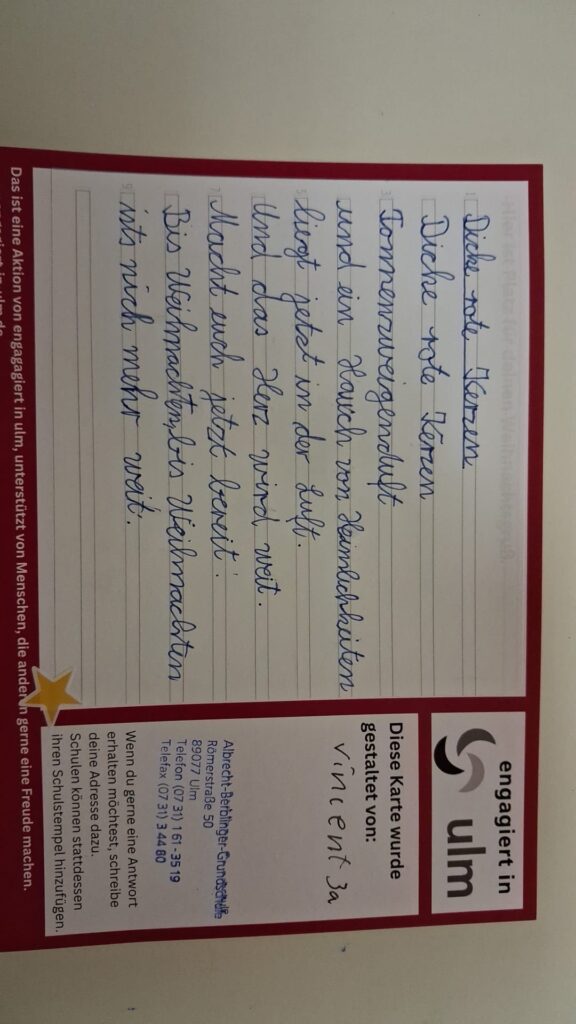 Hier ist Platz für deinen Weihnachtsgruß
1 Dicke rote Kerzen
Dicke rote Kerzen
3 Tannenzweigenduft
und ein Hauch von Heimlichkeiten
5 liegt jetzt in der Luft.
Und das Herz wird weit.
7 Macht euch jetzt bereit!
Bis Weihnachten, bis Weihnachten
9 ists nich mehr weit!
engagiert in
ulm
Diese Karte wurde
gestaltet von:
Vincent 3a
Albrecht-Berblinger-Grundschule
Römerstraße 50
89077 Ulm
Telefon (07 31) 1 61 - 35 19
Telefax (07 31) 3 44 80
Wenn du gerne eine Antwort
erhalten möchtest, schreibe
deine Adresse dazu.
Schulen können stattdessen
ihren Schulstempel hinzufügen.
Das ist eine Aktion von engagagiert in ulm, unterstützt von Menschen, die anderen gerne eine Freude machen.